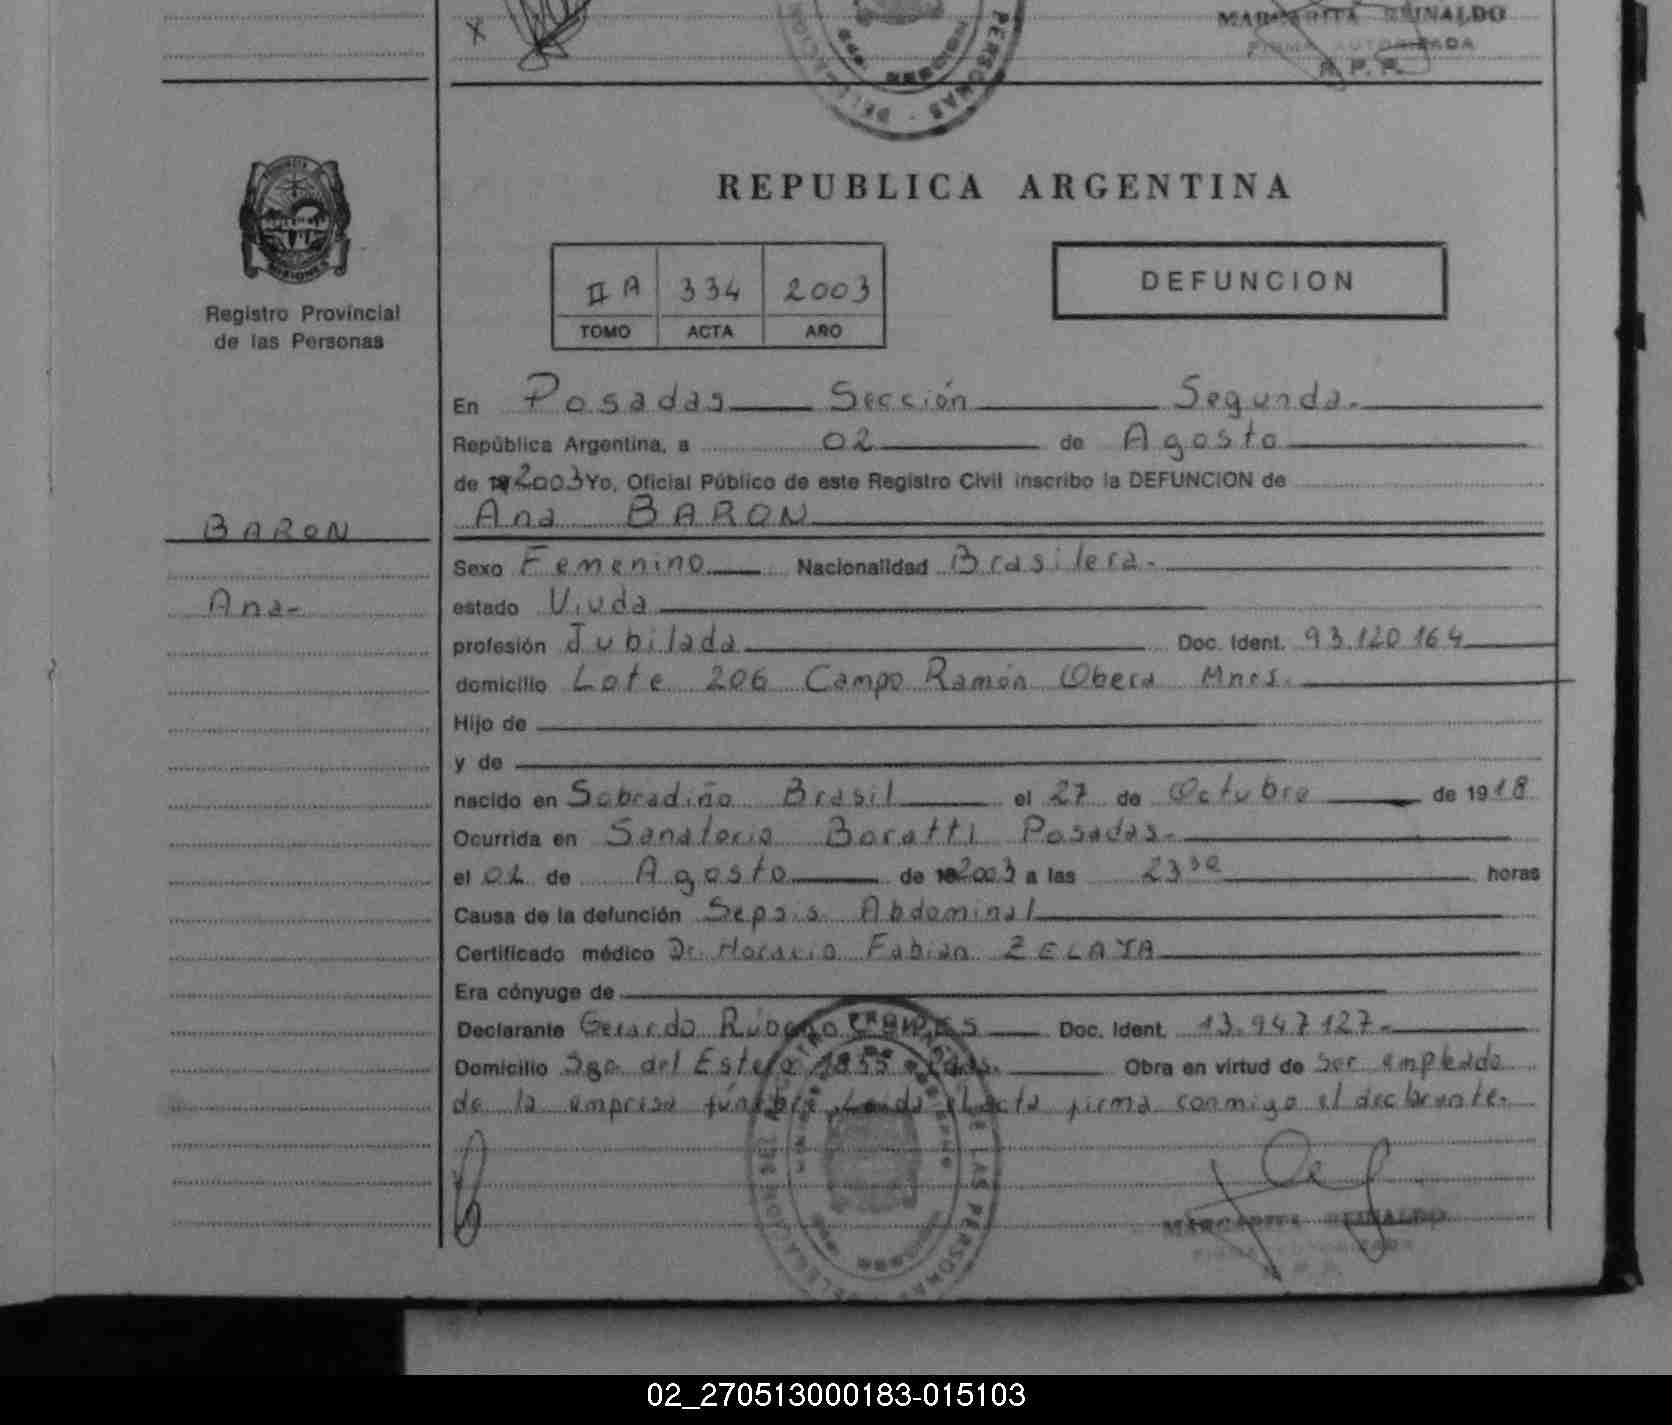 X
MARGARITA REINALDO
FIRMA AUTORIZADA
R. P. P.
PERSONAS
REPUBLICA ARGENTINA
PROVINCIA
MISIONES
Registro Provincial
de las Personas
II A 334 2003
TOMO ACTA AÑO
DEFUNCION
En Posadas Sección Segunda.
República Argentina, a 02 de Agosto
de 19 2003 Yo, Oficial Público de este Registro Civil inscribo la DEFUNCION de
Ana BARON
BARON
Ana-
Sexo Femenino Nacionalidad Brasilera.
estado Viuda
profesión Jubilada Doc. Ident. 93.120.164
domicilio Lote 206 Campo Ramón Obera Mnes.
Hijo de
y de
nacido en Sobradiño Brasil el 27 de Octubre de 1918
Ocurrida en Sanatorio Boratti Posadas.
el 01 de Agosto de 19 2003 a las 23 30 horas
Causa de la defunción Sepsis Abdominal
Certificado médico Dr. Horacio Fabian ZELAYA
Era cónyuge de
Declarante Gerardo Doc. Ident. 13.947.127.
Domicilio Sgo. del Estero 1855 Pdas. Obra en virtud de ser empleado
de la empresa fúnebre Leida el acta firma conmigo el declarante.
DE LAS PERSONAS
MARGARITA REINALDO
FIRMA AUTORIZADA
R. P. P.
02_270513000183-015103